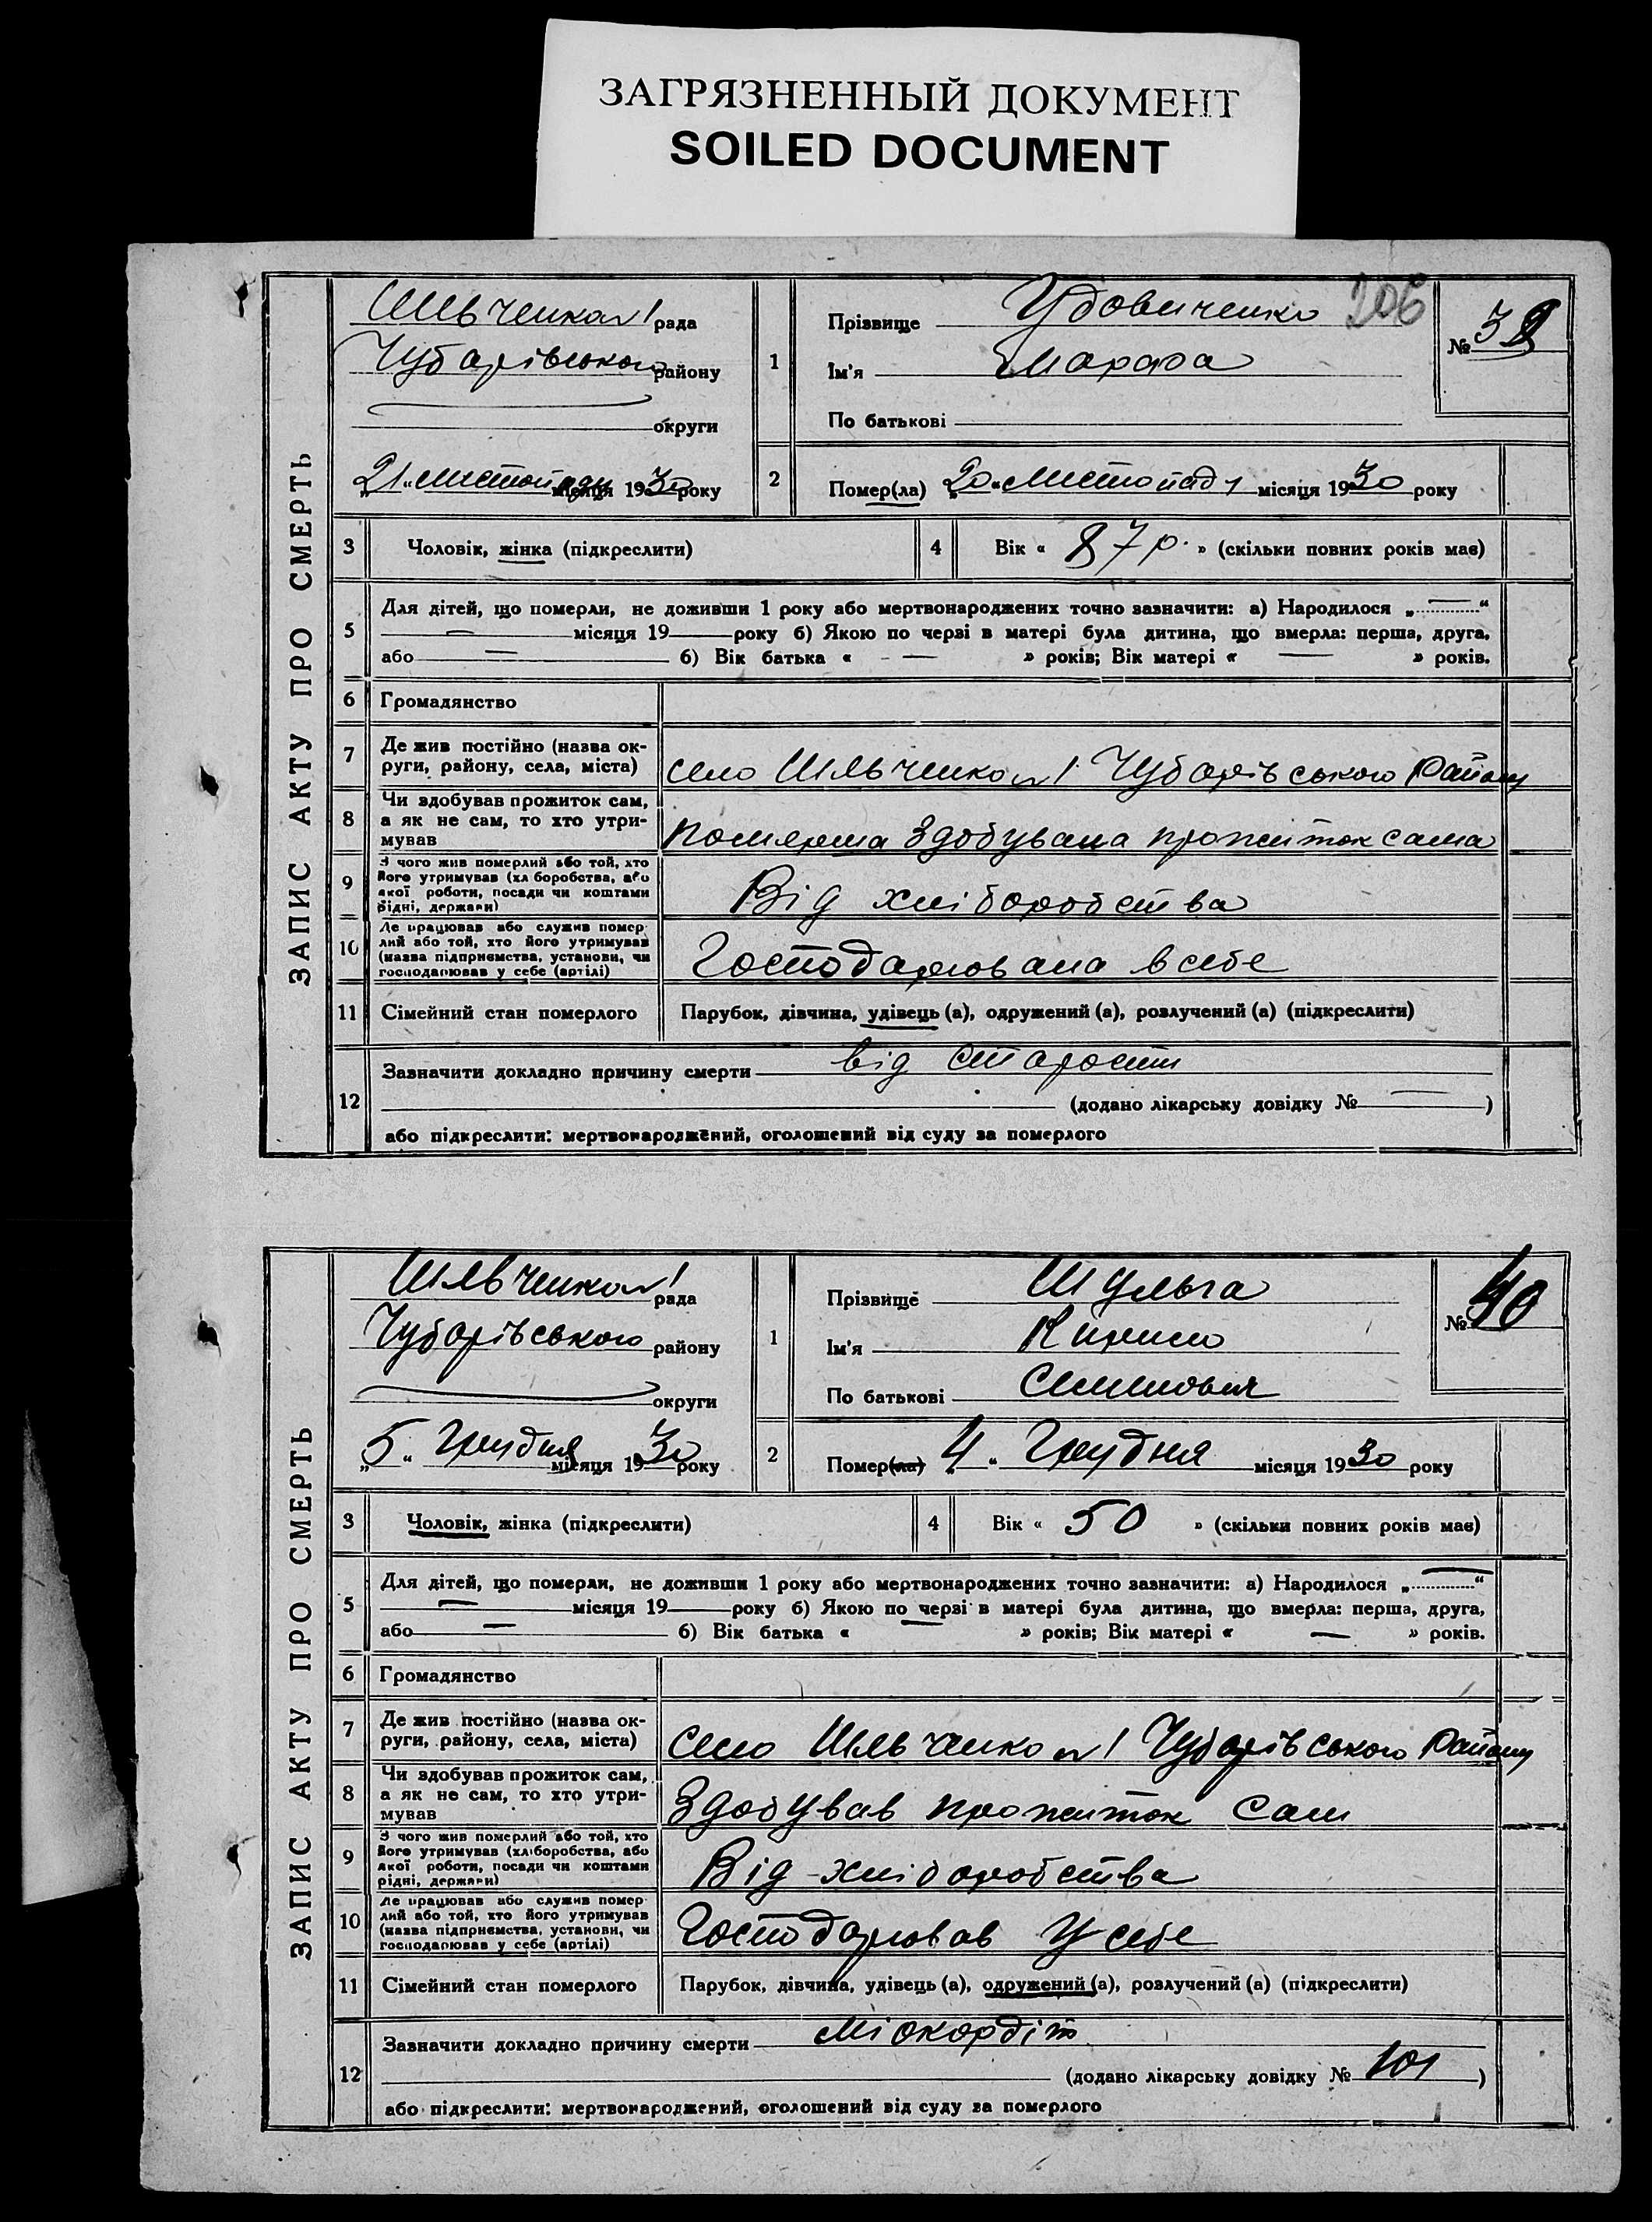 ЗАГРЯЗНЕННЫЙ ДОКУМЕНТ
SOILED DOCUMENT
ЗАПИС АКТУ ПРО СМЕРТЬ
рада
Чубарівського району
округи
„21“ листопада місяця 1930 року
1
Прізвище Удовиченко
206
Ім'я
По батькові
№
2
Помер(ла) „20“ листопада місяця 1930 року
3 Чоловік, жінка (підкреслити)
4 Вік « 87 р. » (скільки повних років має)
5 Для дітей, що померли, не доживши 1 року або мертвонароджених точно зазначити: а) Народилося „ — “
— місяця 19 року б) Якою по черзі в матері була дитина, що вмерла: перша, друга,
або — б) Вік батька « — » років; Вік матері « — » років.
6 Громадянство
7 Де жив постійно (назва ок-
руги, району, села, міста)
село Чубарівського Району
8 Чи здобував прожиток сам,
а як не сам, то хто утри-
мував
померша Здобувала прожиток сама
9 З чого жив померлий або той, хто
його утримував (хліборобства, або
якої роботи, посади чи коштами
рідні, держави)
Від хліборобства
10 Де працював або служив помер-
лий або той, хто його утримував
(назва підприємства, установи, чи
господарював у себе (артілі)
Господарювала в себе
11 Сімейний стан померлого
Парубок, дівчина, удівець (а), одружений (а), розлучений (а) (підкреслити)
12 Зазначити докладно причину смерти від старости
(додано лікарську довідку № — )
або підкреслити: мертвонароджений, оголошений від суду за померлого
ЗАПИС АКТУ ПРО СМЕРТЬ
рада
Чубарівського району
округи
„5“ Грудня місяця 1930 року
1
Прізвище Шульга
Ім'я Кирило
По батькові Семенович
№ 40
2
Помер(ла) „4“ Грудня місяця 1930 року
3 Чоловік, жінка (підкреслити)
4 Вік « 50 » (скільки повних років має)
5 Для дітей, що померли, не доживши 1 року або мертвонароджених точно зазначити: а) Народилося „ — “
— місяця 19 року б) Якою по черзі в матері була дитина, що вмерла: перша, друга,
або — б) Вік батька « — » років; Вік матері « — » років.
6 Громадянство
7 Де жив постійно (назва ок-
руги, району, села, міста)
село Чубарівського Району
8 Чи здобував прожиток сам,
а як не сам, то хто утри-
мував
Здобував прожиток сам
9 З чого жив померлий або той, хто
його утримував (хліборобства, або
якої роботи, посади чи коштами
рідні, держави)
Від хліборобства
10 Де працював або служив помер-
лий або той, хто його утримував
(назва підприємства, установи, чи
господарював у себе (артілі)
Господарював у себе
11 Сімейний стан померлого
Парубок, дівчина, удівець (а), одружений (а), розлучений (а) (підкреслити)
12 Зазначити докладно причину смерти Міокордіт
(додано лікарську довідку № 101 )
або підкреслити: мертвонароджений, оголошений від суду за померлого